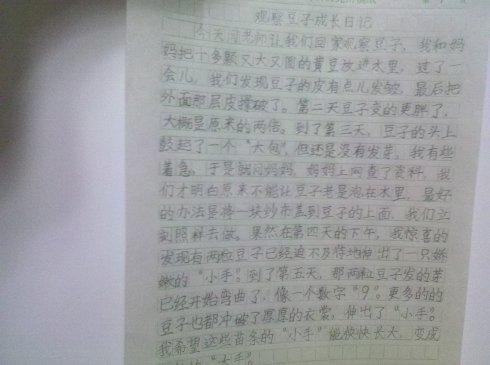 观察豆子成长日记
今天闫老师让我们回家观察豆子，我和妈
妈把十多颗又大又圆的黄豆放进水里，过了一
会儿，我们发现豆子的皮有点儿发皱，最后把
外面那层皮撑破了。第二天豆子变的更胖了，
大概是原来的两倍。到了第三天，豆子的头上
鼓起了一个“大包”，但还是没有发芽，我有些
着急，于是就问妈妈，妈妈上网查了资料，我
们才明白原来不能让豆子老是泡在水里，最好
的办法是将一块纱布盖到豆子的上面，我们立
刻照样去做。果然在第四天的下午，我惊喜的
发现有两粒豆子已经迫不及待地伸出了一只娇
嫩的“小手”。到了第五天，那两粒豆子发的芽
已经开始弯曲了，像一个数字“9”。更多的的
豆子也都冲破了厚厚的衣裳，伸出了“小手”。
我希望这些苗条的“小手”能快快长大，变成
的“大手”